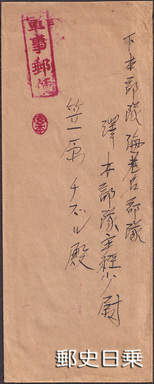 下本部隊海老名部隊
澤本部隊主 少尉
笠 チズル殿
軍事郵便
郵史日乗